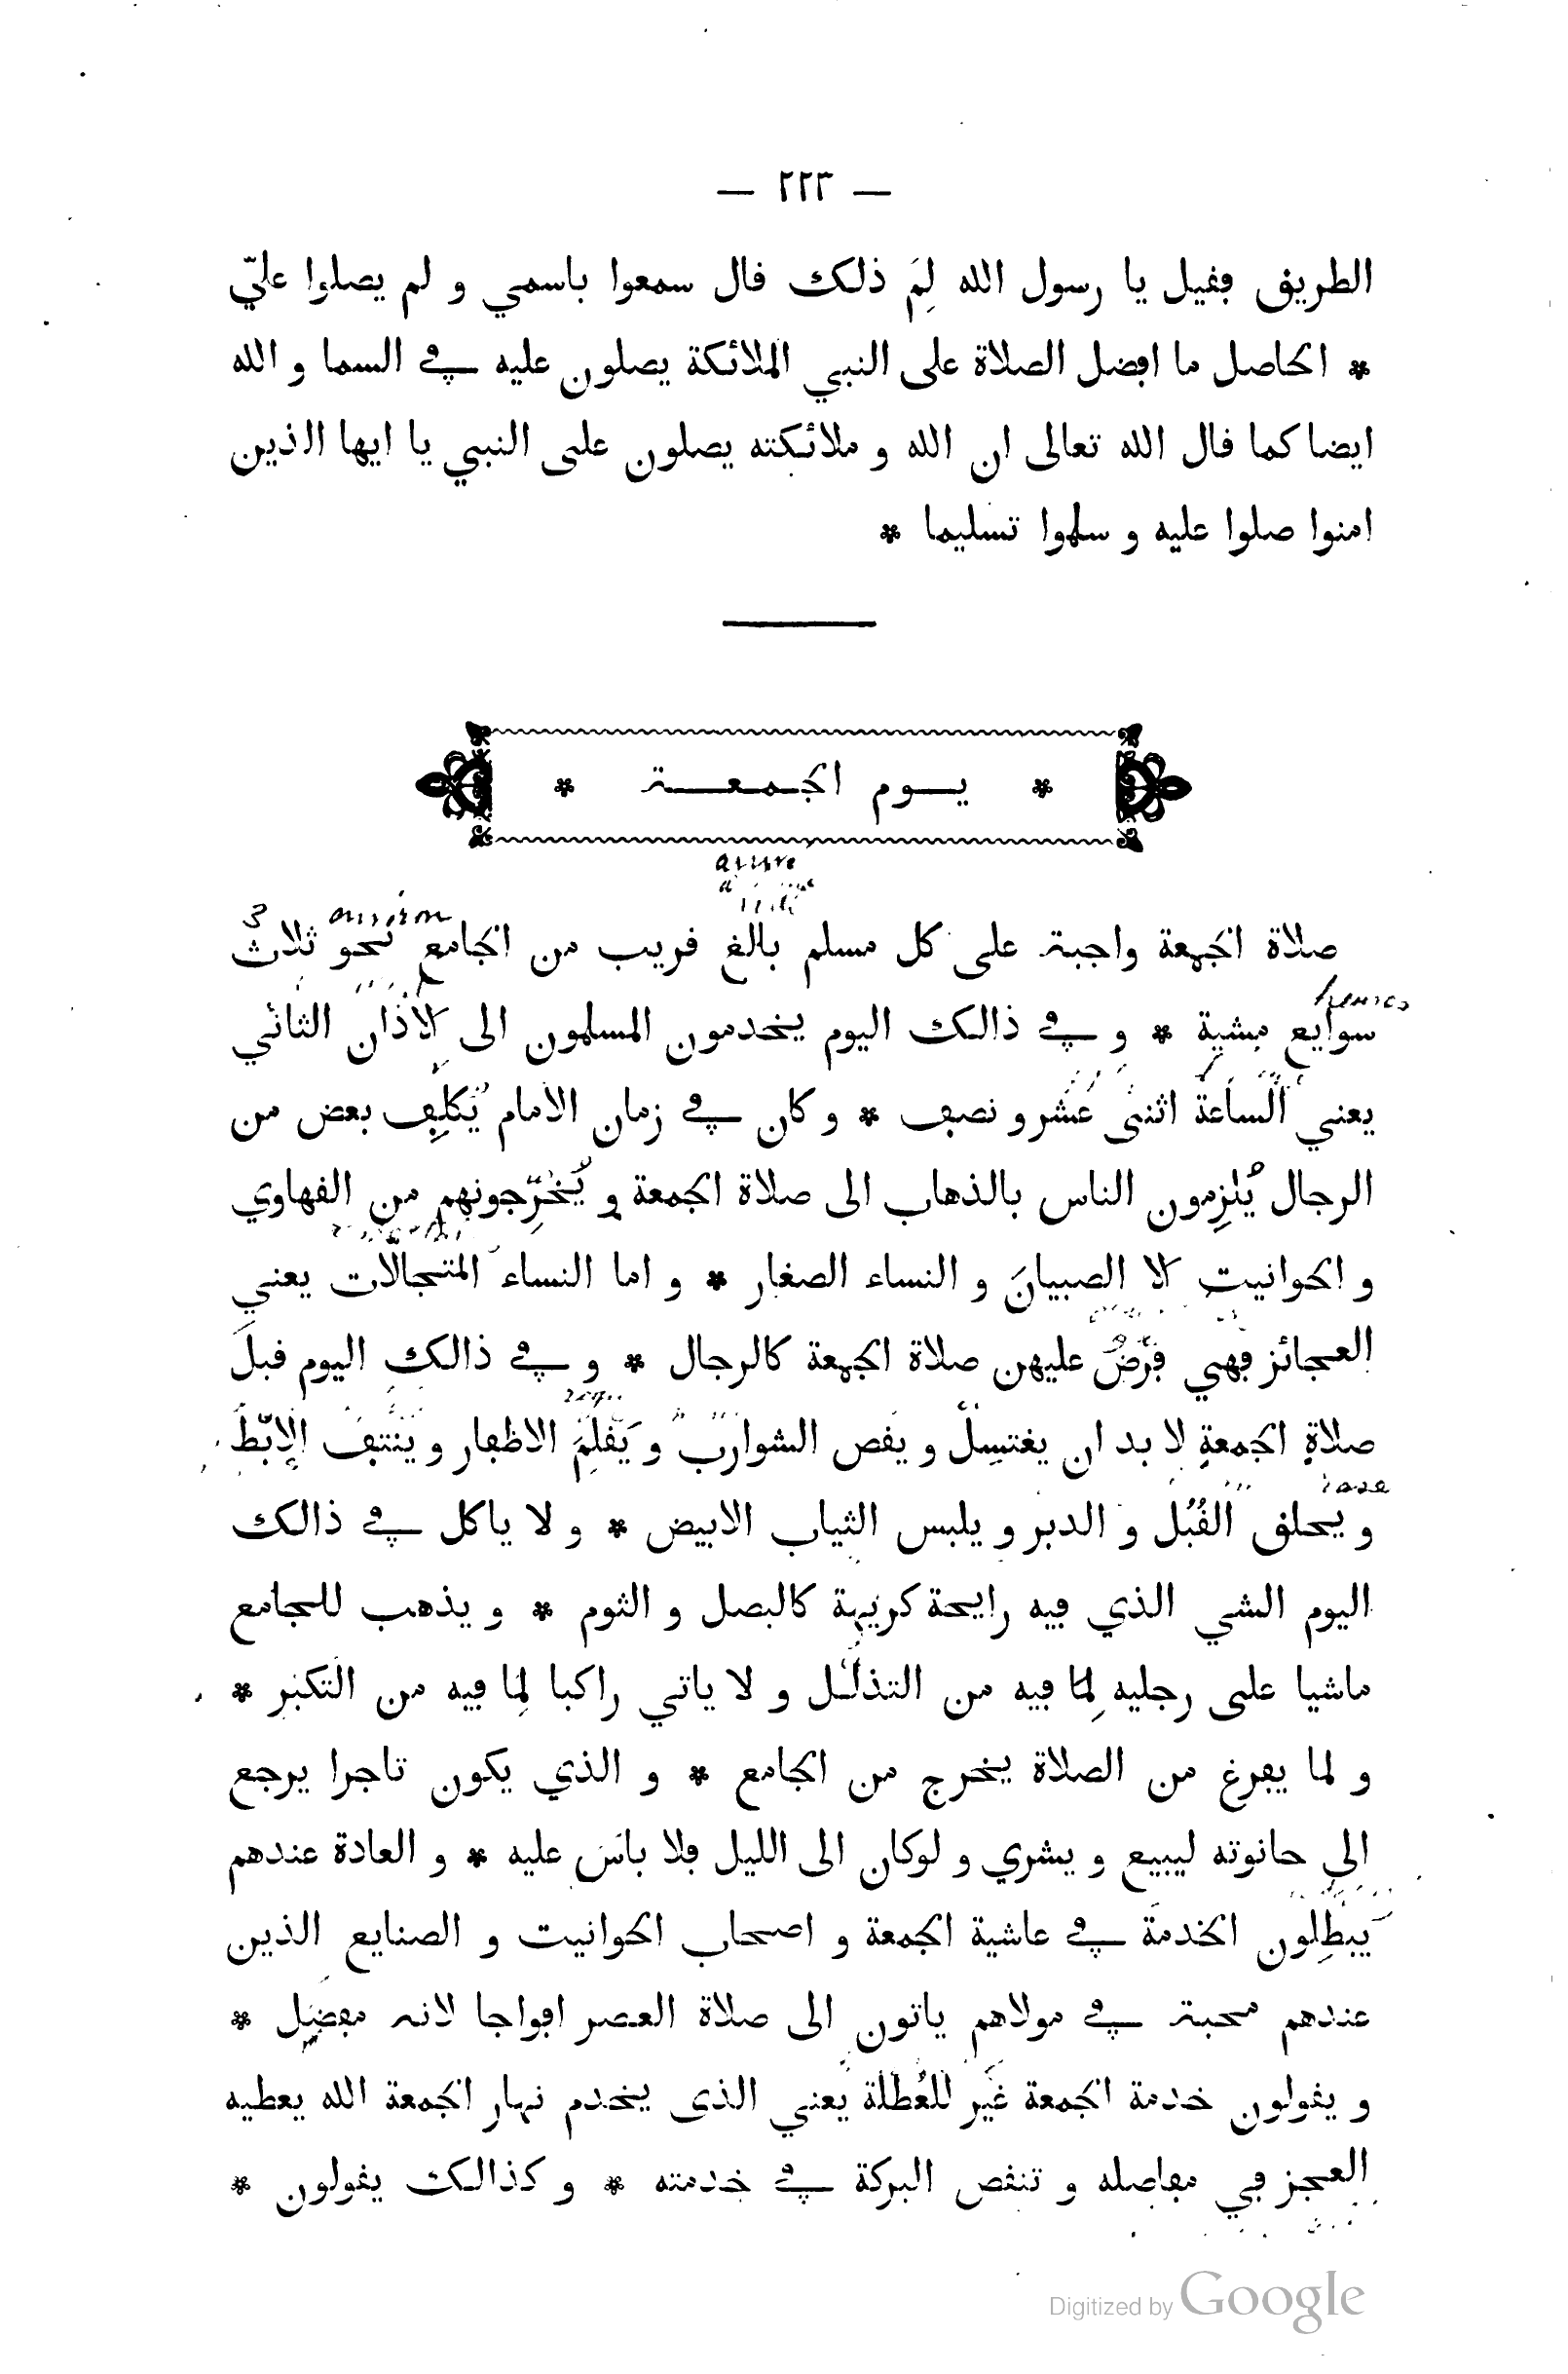 — ٢٢٣ —
الطريق فقيل يا رسول الله لِمَ ذلك قال سمعوا باسمي و لم يصلوا عليّ
* الحاصل ما افضل الصلاة على النبي الملائكة يصلون عليه في السما و الله
ايضا كما قال الله تعالى ان الله و ملائكته يصلون على النبي يا ايها الذين
امنوا صلوا عليه و سلموا تسليما *
* يوم الجمعة *
صلاة الجمعة واجبة على كل مسلم بالغ قريب من الجامع نحو ثلاث
سوايع مشية * و في ذالك اليوم يخدمون المسلمون الى الاذان الثاني
يعني الساعة اثنى عشر و نصف * و كان في زمان الامام يُكلِف بعض من
الرجال يُلزِمون الناس بالذهاب الى صلاة الجمعة و يُخَرِّجونهم من القهاوي
و الحوانيت الا الصبيانَ و النساء الصغار * و اما النساء المتجالّات يعني
العجائز فهي فرضٌ عليهن صلاة الجمعة كالرجال * و في ذالك اليوم قبلَ
صلاةِ الجمعةِ لا بد ان يغتسِل و يقص الشوارب و يَقلِمَ الاظفار و ينتف الإبْطَ
و يحلق القُبُل و الدبر و يلبس الثياب الابيض * و لا ياكل في ذالك
اليوم الشي الذي فيه رايحة كريهة كالبصل و الثوم * و يذهب للجامع
ماشيا على رجليه لِما فيه من التذلُل و لا ياتي راكبا لِما فيه من التكبر *
و لما يفرغ من الصلاة يخرج من الجامع * و الذي يكون تاجرا يرجع
الى حانوته ليبيع و يشري و لوكان الى الليل فلا باسَ عليه * و العادة عندهم
يبطِلون الخدمة في عاشية الجمعة و اصحاب الحوانيت و الصنايع الذين
عندهم محبة في مولاهم ياتون الى صلاة العصر افواجا لانه مفضل *
و يقولون خدمة الجمعة غير للعُطلة يعني الذى يخدم نهار الجمعة الله يعطيه
العجز في مفاصله و تنقص البركة في خدمته * و كذالك يقولون *
Digitized by Google